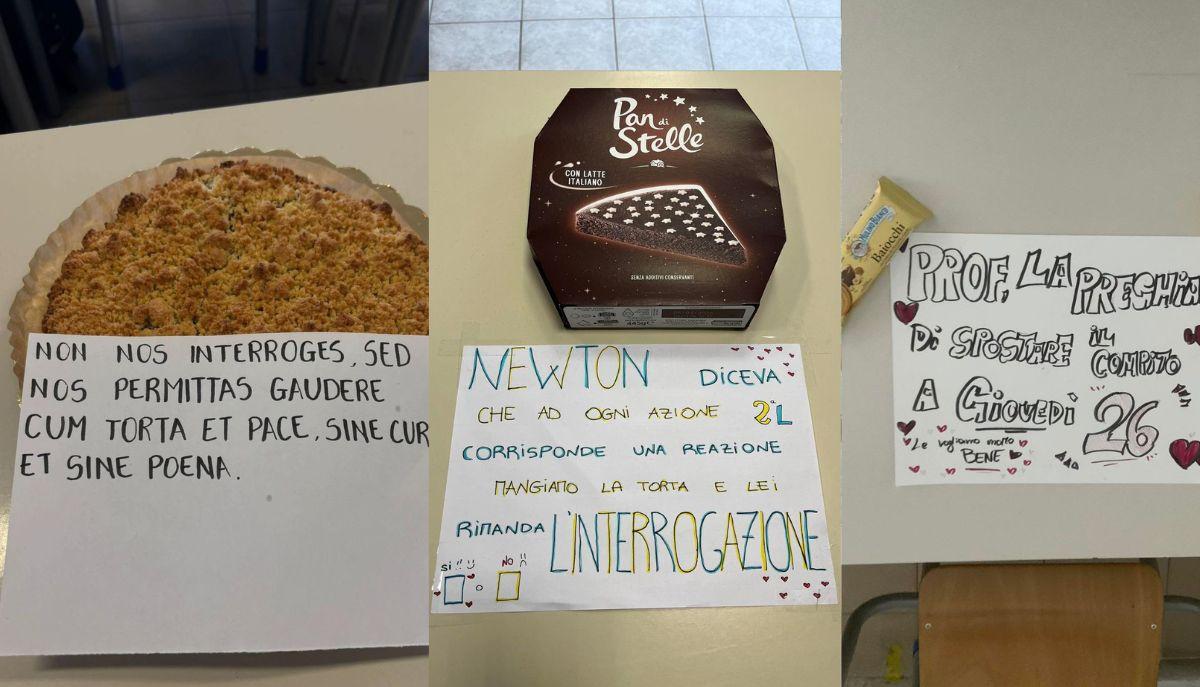 NON NOS INTERROGES, SED
NOS PERMITTAS GAUDERE
CUM TORTA ET PACE, SINE CUR
ET SINE POENA.
Pan di
Stelle
CON LATTE
ITALIANO
SENZA ADDITIVI CONSERVANTI
445g e
NEWTON DICEVA
CHE AD OGNI AZIONE 2ªL
CORRISPONDE UNA REAZIONE
MANGIAMO LA TORTA E LEI
RIMANDA L'INTERROGAZIONE
sì!! :) o NO !! :(
MULINO BIANCO
Baiocchi
PROF, LA PREGHIA
Di SPOSTARE iL
COMPiTO
A GiOVEDÌ 26
Le vogliamo molto
BENE